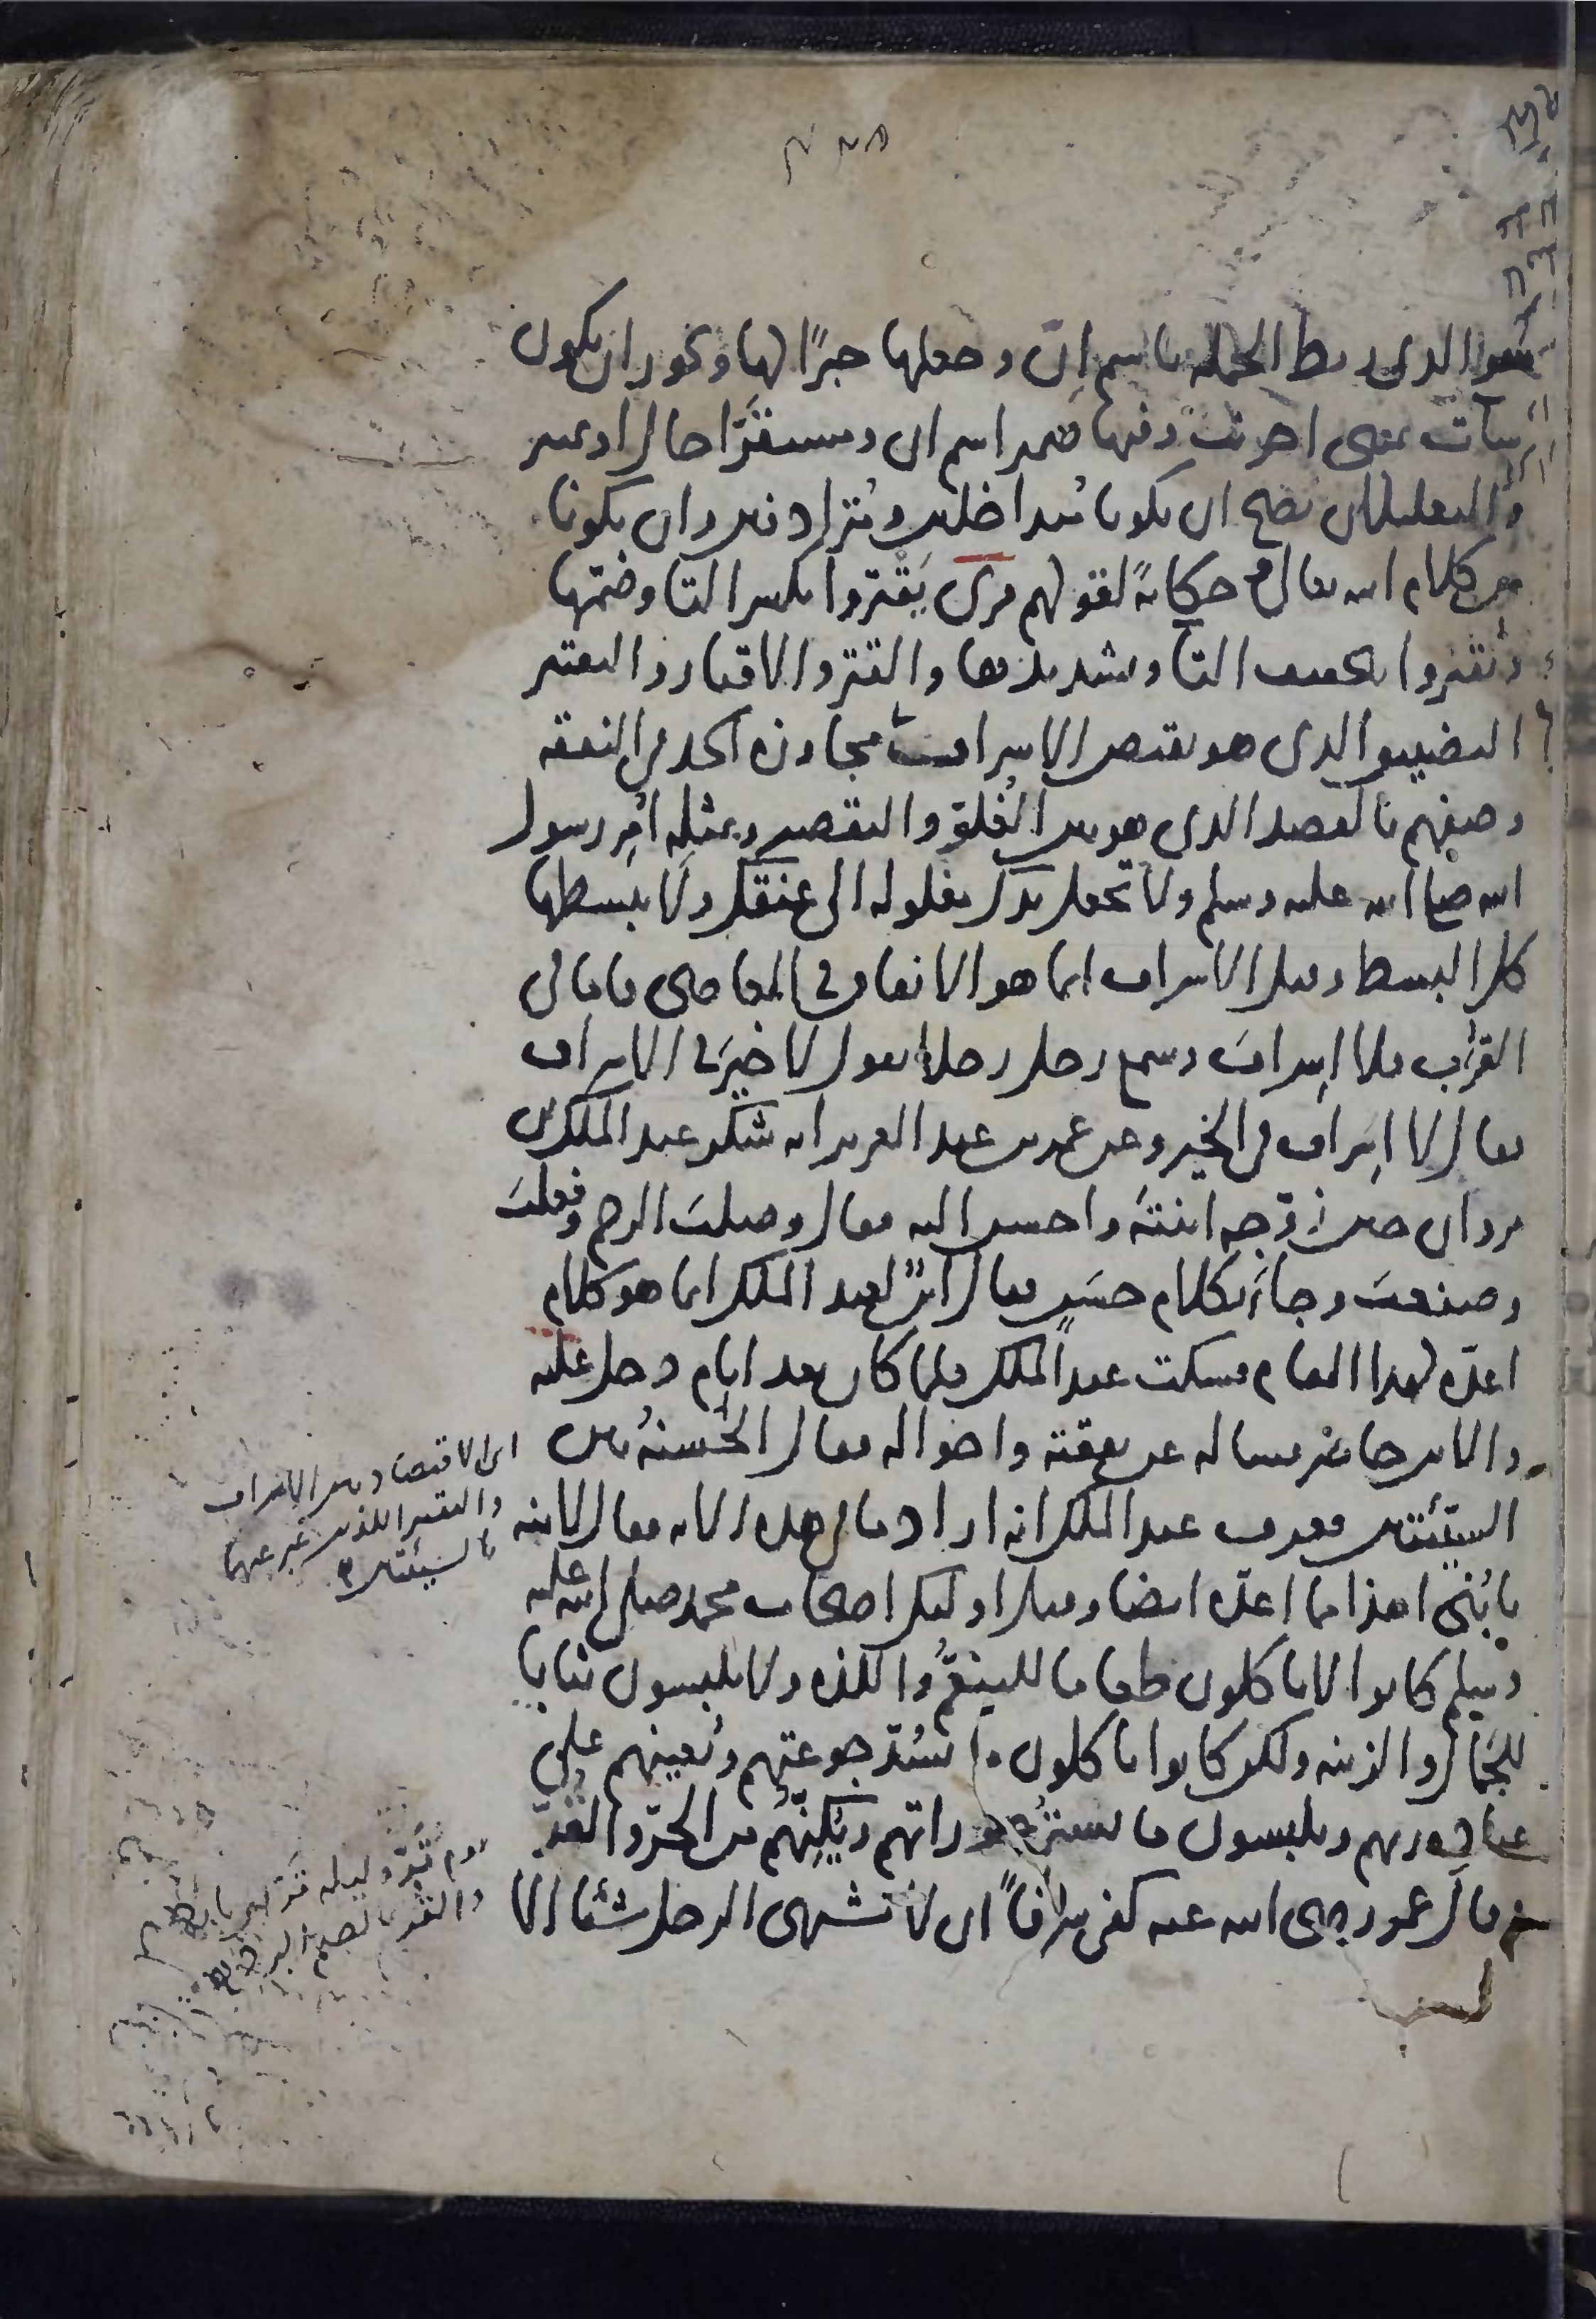 هو الذى ربط الجمله باسم ان وجعلها خبرًا لها ويجوز ان يكون
ساءت بمعنى احزنت وفيها ضمير اسم ان ومستقرًا حال او تمييز
والتعليلان يصح ان يكونا متداخلين ومترادفين وان يكونا
من كلام الله تعالى وحكايةً لقولهم قرى يَقْتِروا بكسر التا وضمها
ويُقتروا بتخفيف التا وتشديدها والقتر والاقتار والتقتير
التضييق الذى هو نقيض الاسراف والاسراف مجاوزه الحد فى النفقه
وصفهم بالقصد الذى هو بين الغُلوّ والتقصير وبمثلِه اُمِر رسول
الله صلى الله عليه وسلم ولا تجعل يدك مغلوله الى عنقك ولا تبسطها
كل البسط وقيل الاسراف انما هو الانفاق فى المعاصى فاما فى
القُرَب فلا اِسراف وسمع رجل رجلا يقول لا خيرَ فى الاسراف
فقال لا اِسراف فى الخير وعن عمر بن عبد العزيز انه شكر عبد الملك بن
مروان حين زوّجه ابنتَه واحسن اليه فقال وصلتَ الرحم وفعلتَ
وصنعتَ وجاء بكلام حسَن فقال ابنٌ لعبد الملك انما هو كلام
اعدّه لهذا المقام فسكت عبد الملك فلما كان بعد ايام دخل عليه
والابن حاضر فساله عن نفقته واحواله فقال الحسنهُ بين
السيّئتين فعرف عبد الملك انه اراد ما فى هذه الايه فقال لابنه
يا بُنىّ اهذا مما اعدّه ايضا وقيل اولئك اصحاب محمد صلى الله عليه
وسلم كانوا لا ياكلون طعاما للتنعّم واللذه ولا يلبسون ثيابا
للجَمال والزينه ولكن كانوا ياكلون ما يسُدّ جوعتهم ويُعينهم على
عباده ربهم ويلبسون ما يستُر عوراتهم ويُكِنّهُم من الحرّ والقُرّ
وقال عمر رضى الله عنه كفى سرفاً ان لا يشتهى الرجل شيئا الا
اى الاقتصاد بين الاسراف
والتقتير اللذين عبر عنهما
بالسيئتين
يوم قَرّ وليله قَرّه اى بارده
والقُر بالضم البرد